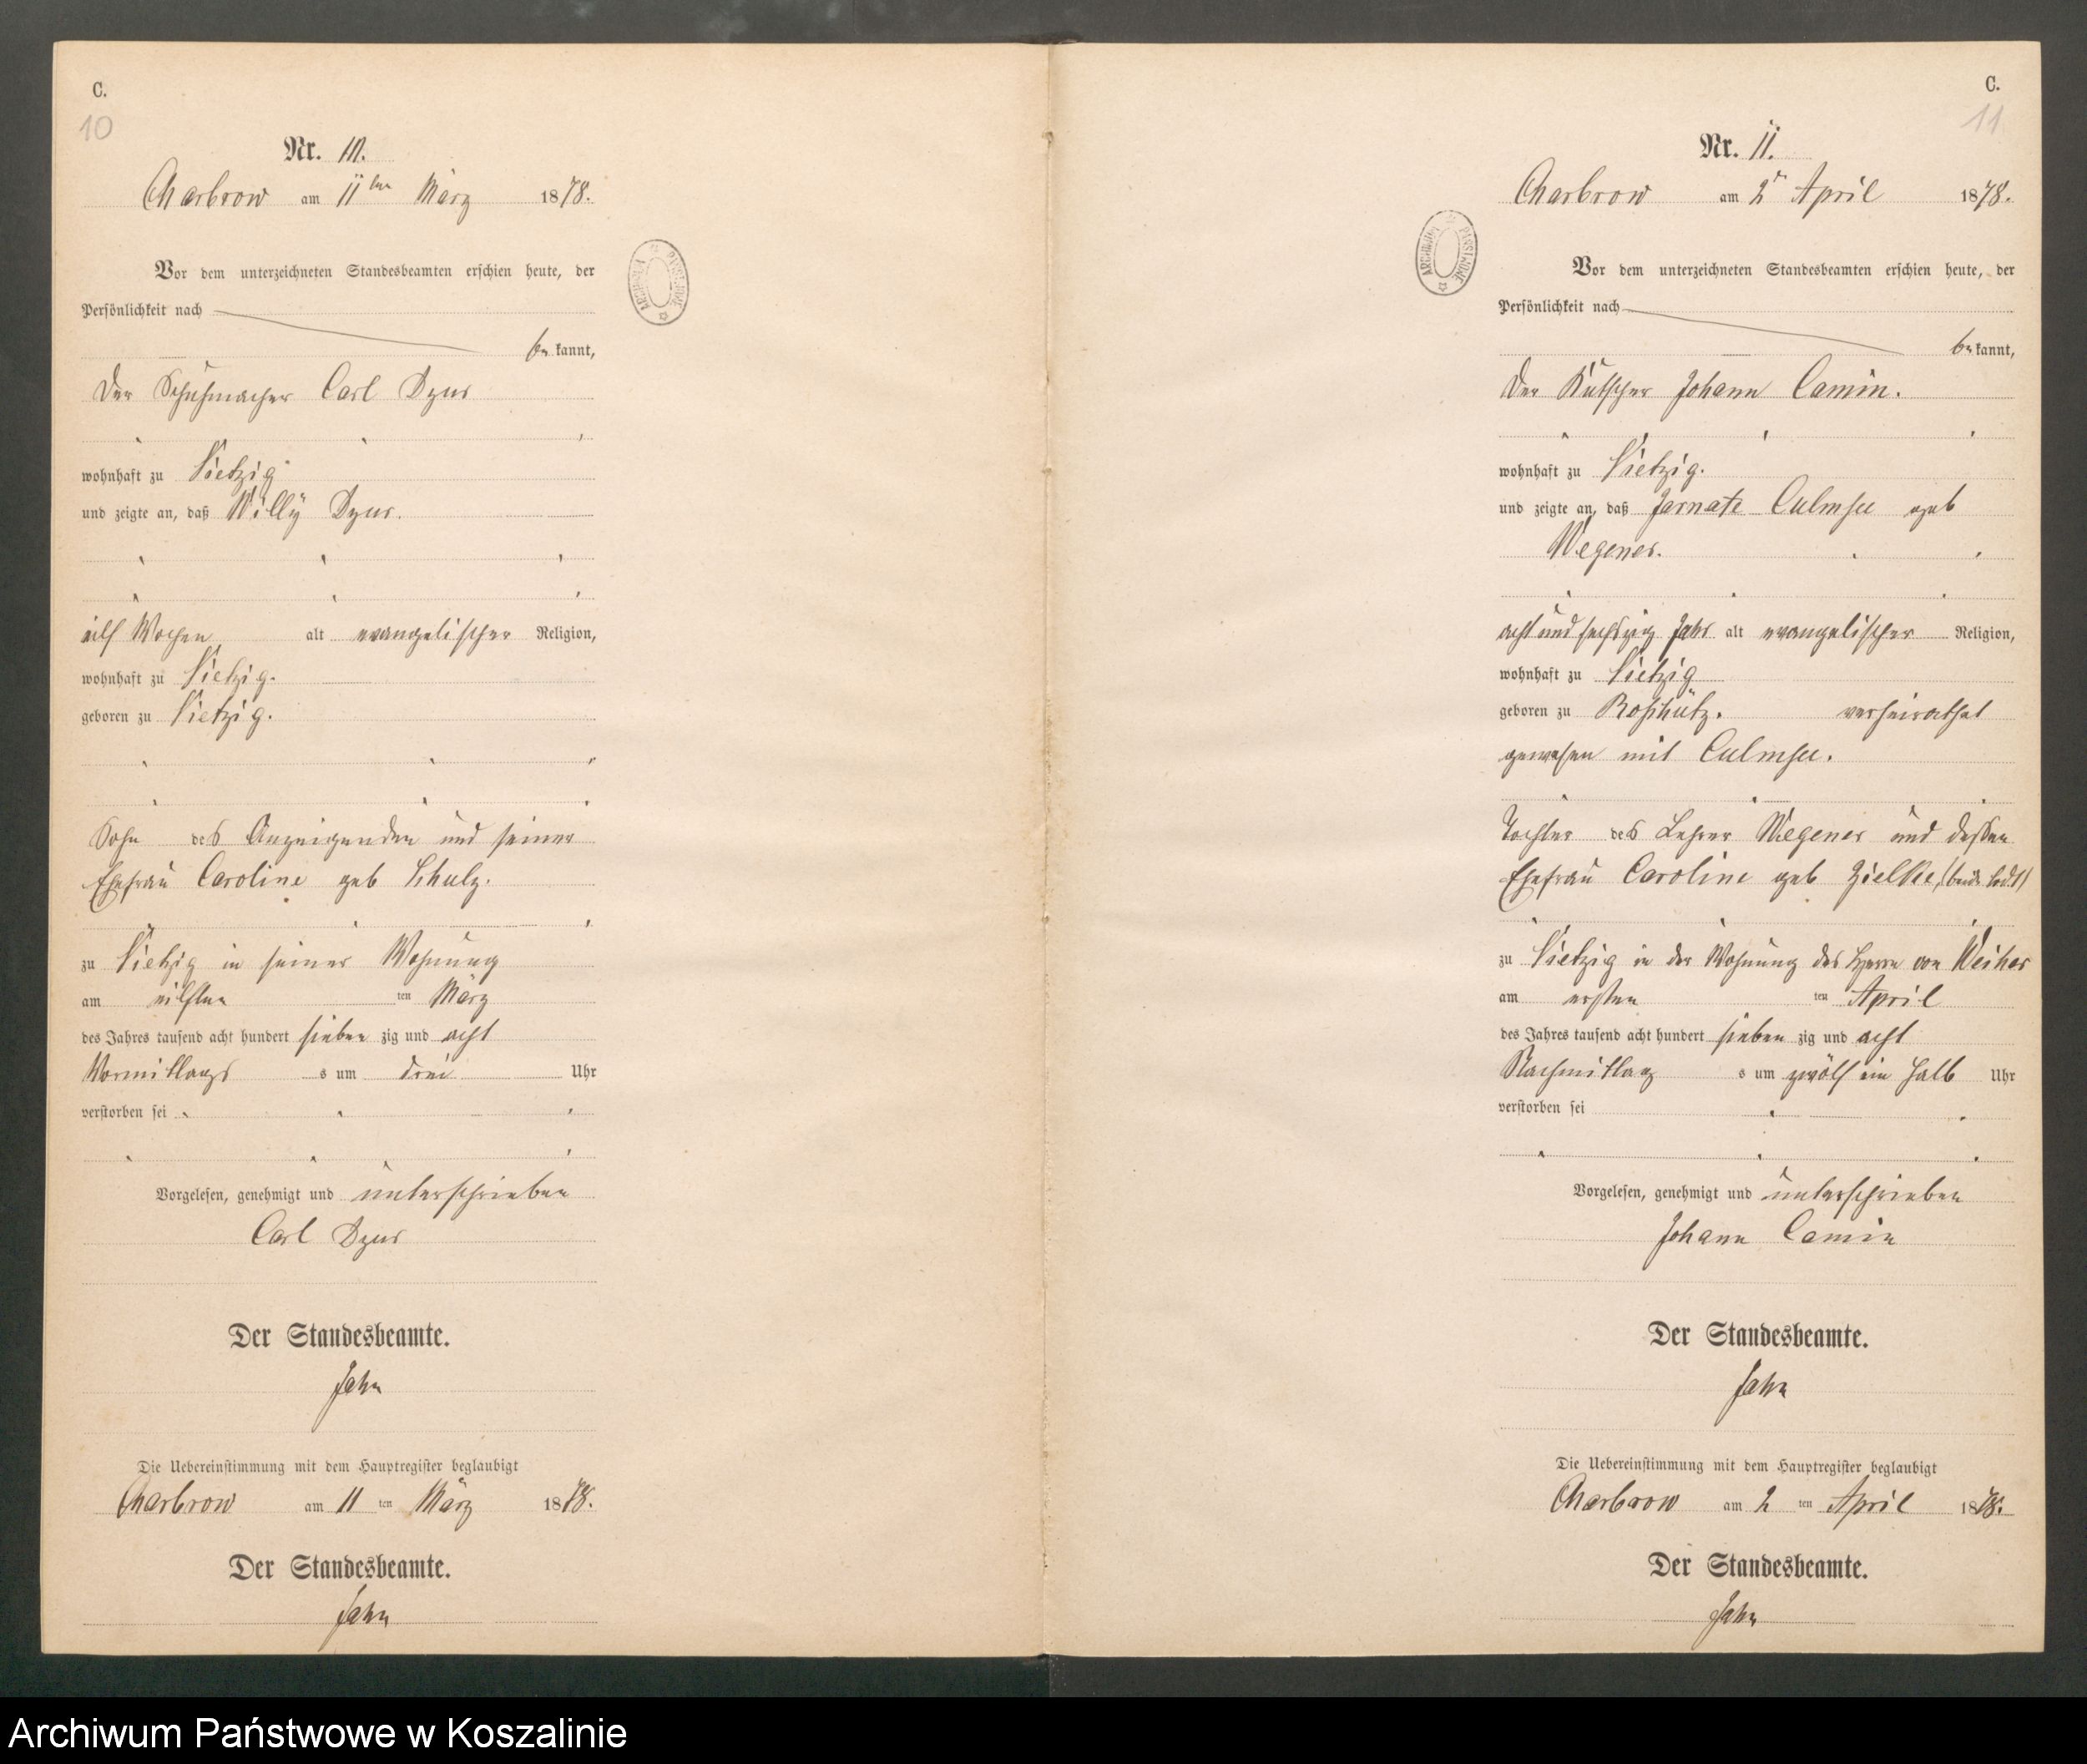 C.
10
Nr. 10.
Charbrow am 11ten März 1878.
Vor dem unterzeichneten Standesbeamten erschien heute, der
Persönlichkeit nach
be kannt,
Der Schuhmacher Carl Dzus
wohnhaft zu Vietzig
und zeigte an, daß Willy Dzus.
eilf Wochen alt evangelischer Religion,
wohnhaft zu Vietzig.
geboren zu Vietzig.
Sohn des Anzeigenden und seiner
Ehefrau Caroline geb Schulz.
zu Vietzig in seiner Wohnung
am eilften ten März
des Jahres tausend acht hundert sieben zig und acht
Vormittags s um drei Uhr
verstorben sei
Vorgelesen, genehmigt und unterschrieben
Carl Dzus
Der Standesbeamte.
Jahn
Die Uebereinstimmung mit dem Hauptregister beglaubigt
Charbrow am 11 ten März 1878.
Der Standesbeamte.
Jahn
ARCHIWUM PAŃSTWOWE
C.
11
Nr. 11.
Charbrow am 2 April 1878.
Vor dem unterzeichneten Standesbeamten erschien heute, der
Persönlichkeit nach
be kannt,
Der Kutscher Johann Camin.
wohnhaft zu Vietzig.
und zeigte an, daß Culmsee geb
Wegener.
acht und sechszig Jahr alt evangelischer Religion,
wohnhaft zu Vietzig
geboren zu Roschütz. verheirathet
gewesen mit Culmsee.
Tochter des Lehrer Wegener und dessen
Ehefrau Caroline geb Zielke, (beide todt)
zu Vietzig in der Wohnung des Herrn von Weiher
am ersten ten April
des Jahres tausend acht hundert sieben zig und acht
Nachmittag s um zwölf ein halb Uhr
verstorben sei
Vorgelesen, genehmigt und unterschrieben
Johann Camin
Der Standesbeamte.
Jahn
Die Uebereinstimmung mit dem Hauptregister beglaubigt
Charbrow am 2 ten April 1878.
Der Standesbeamte.
Jahn
Archiwum Państwowe w Koszalinie